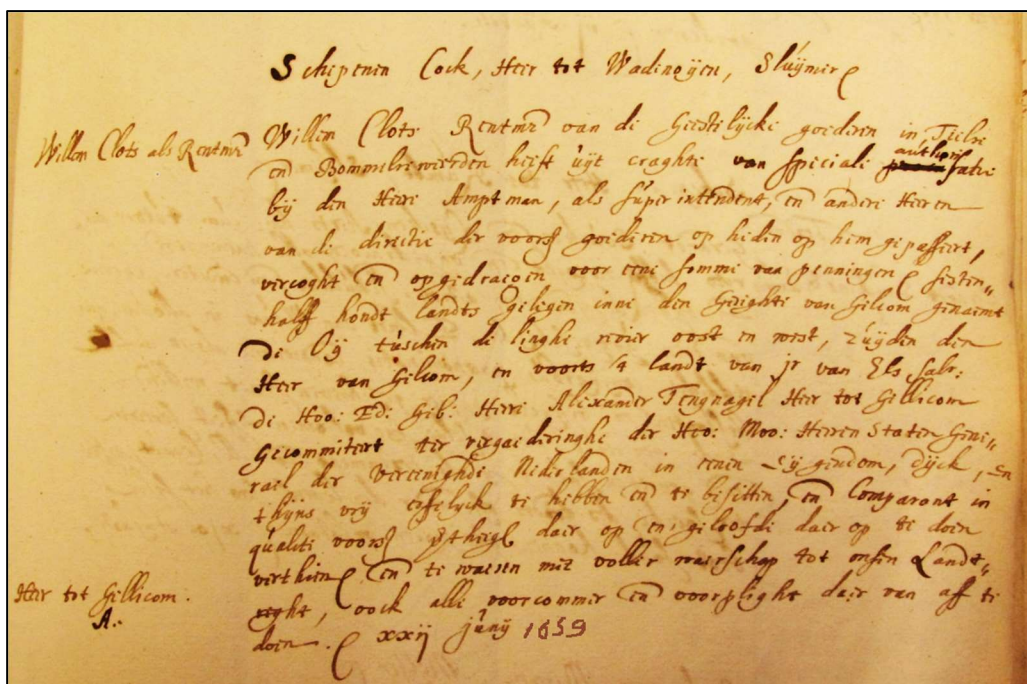 Schepenen Cock, Heer tot Wadenoyen, Sluymer
Willem Clots als Rentmr
Willem Clots Rentmr van de Geestelycke goederen in Tielre
en Bommelreweerden heeft uyt craghte van speciale authorisatie
bij den Heere Amptman, als superintendent, en andere Heeren
van de directie der voors goederen op heden op hem gepasseert,
vercoght en opgedraegen voor eene somme van penningen sesten„
halff hondt landts gelegen inne den Gerighte van Gelicom genaemt
De Oÿ tusschen de linghe revier oost en west, zuyden den
Heer van Gelicom, en voorts 't landt van jr van Els salr:
de Hoo: Ed: Geb: Heere Alexander Tengnagel Heer tot Gellicom
Gecommiteert ter vergaederinghe der Hoo: Moo: Heeren Staten Gene„
rael der vereenighde Nederlanden in eenen eygendom, dyck, en
thyns vrij erffelyck te hebben en te besitten, en Comparant in
qualite voors daer op en geloofde daer op te doen
verthien en te waeren met voller waerschap tot onsen Landt„
reght, oock alle voorcommer en voorplight daer van aff te
doen. xxij juny 1659
Heer tot Gellicom.
A.